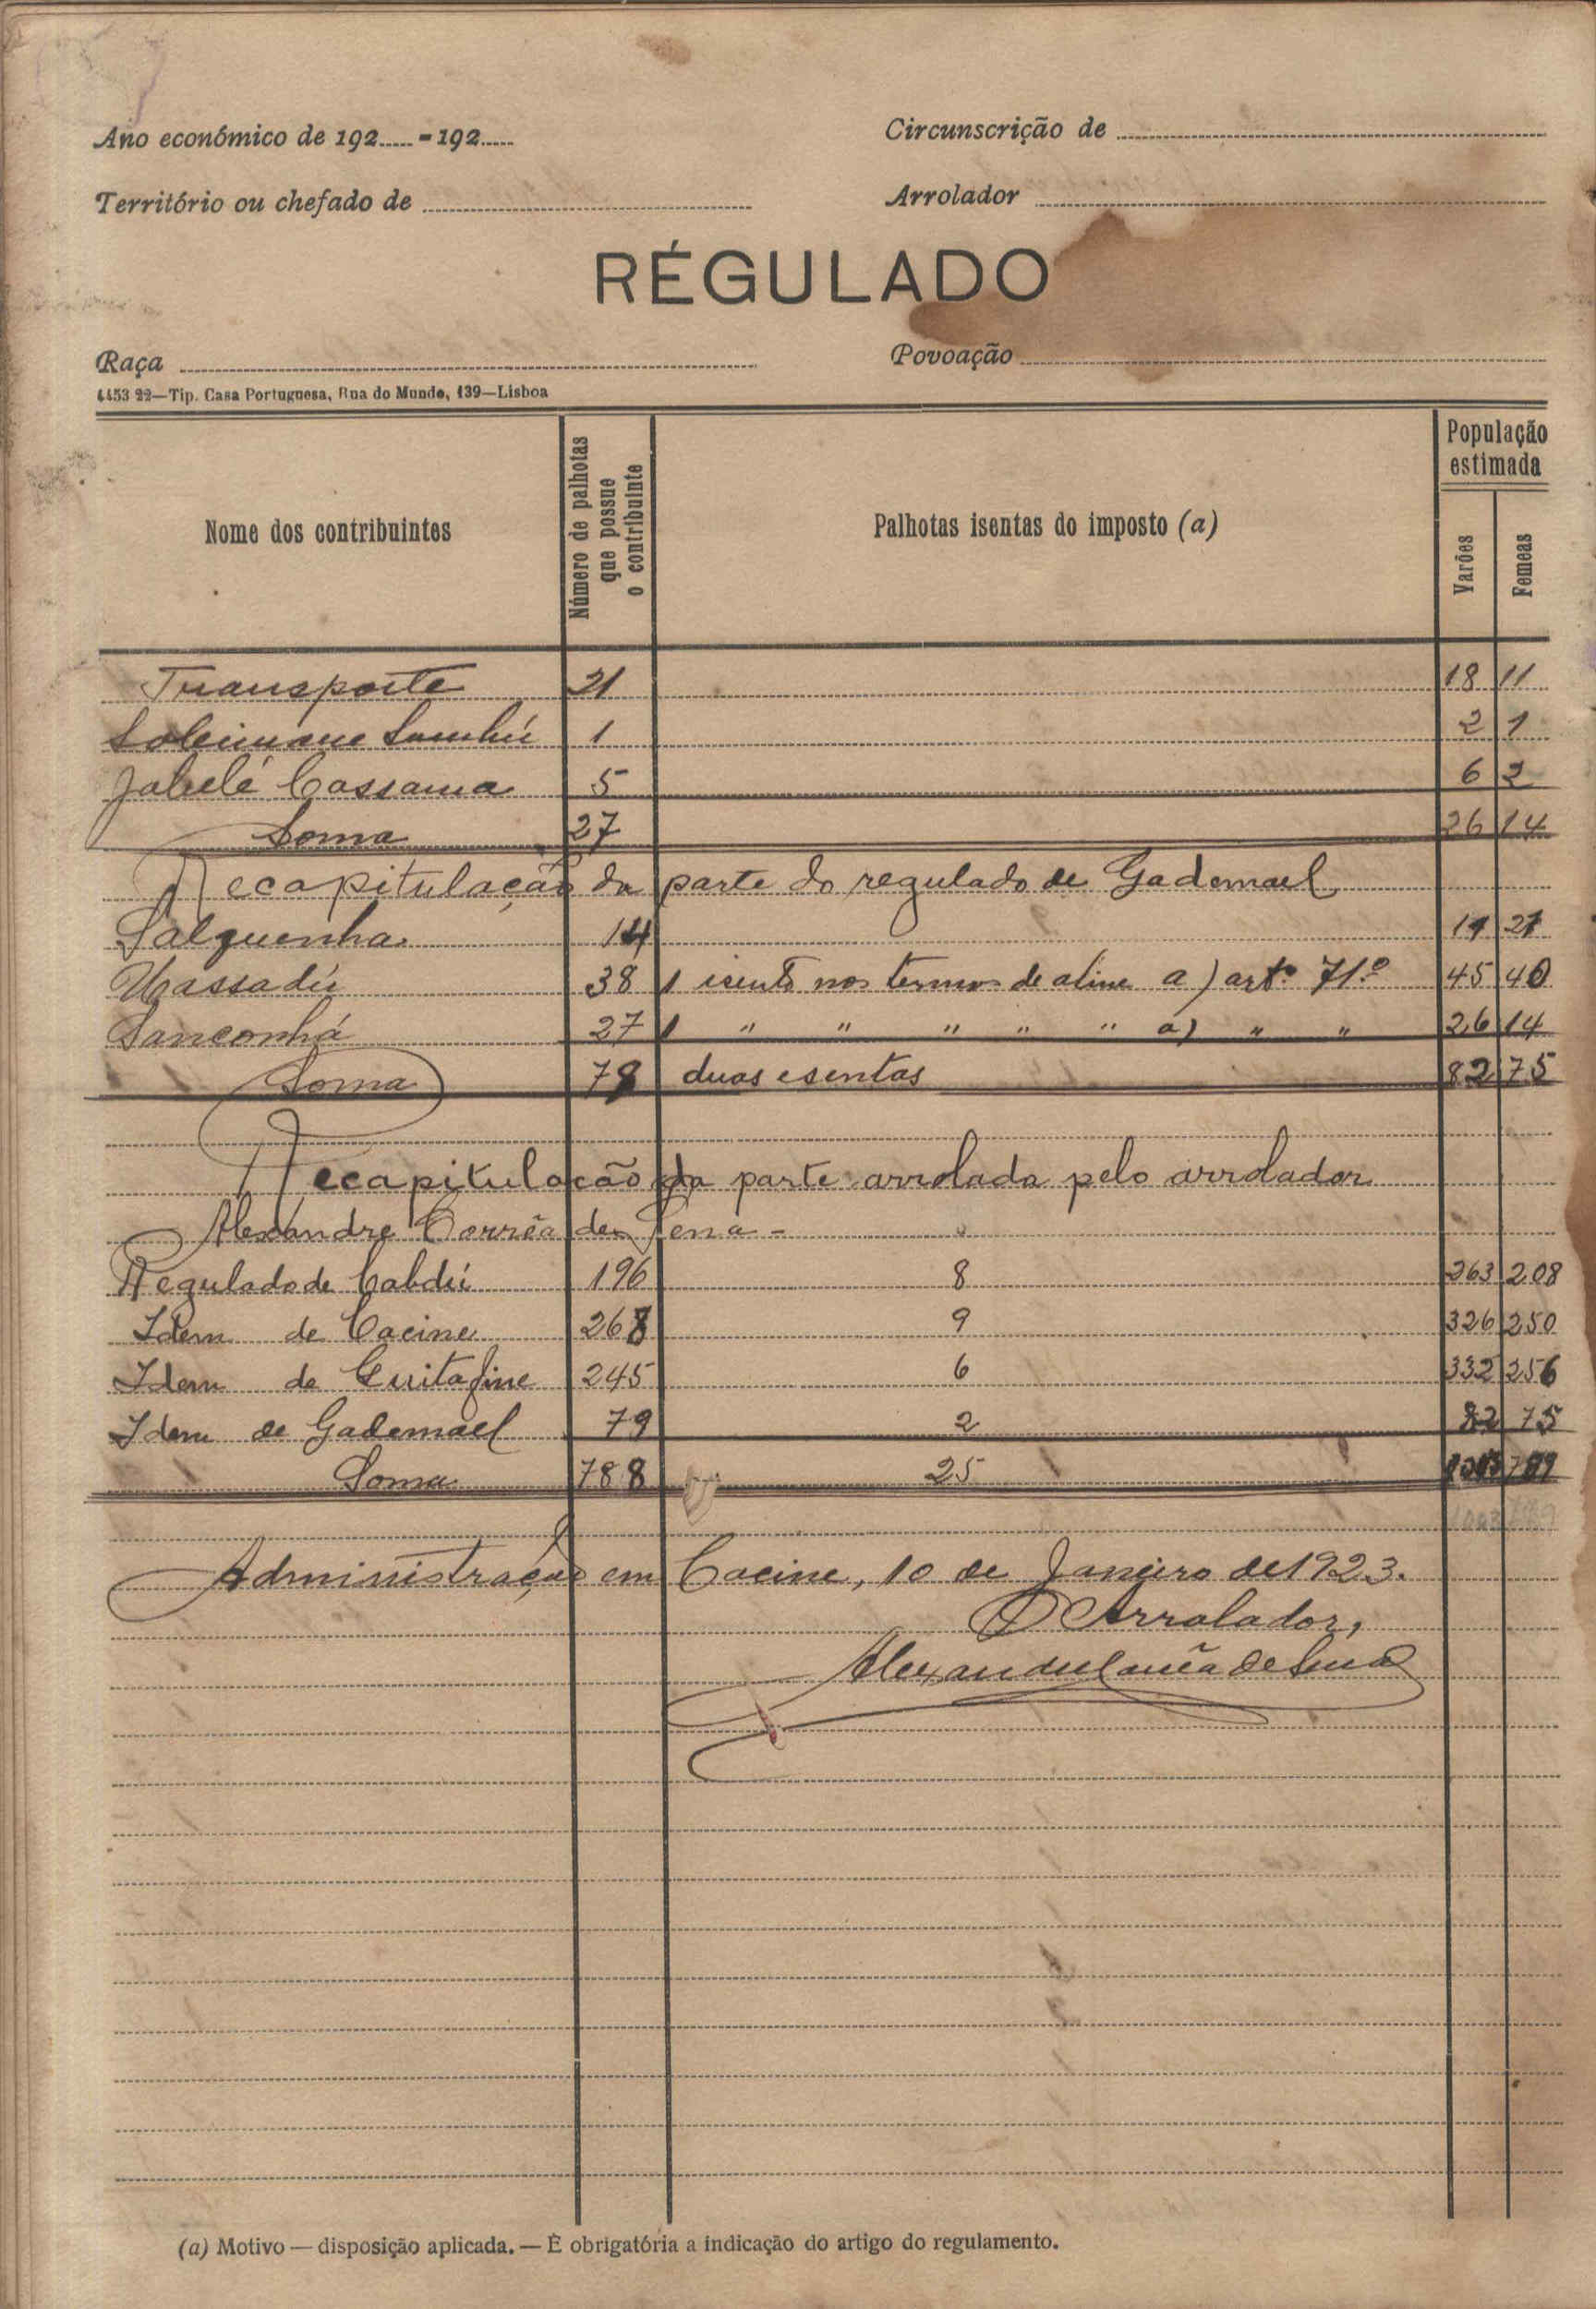 Ano económico de 192..... - 192..... Circunscrição de
Território ou chefado de Arrolador
RÉGULADO
Raça Povoação
4453 22—Tip. Casa Portuguesa, Rua do Mundo, 139—Lisboa
Nome dos contribuintes
Número de palhotas que possue o contribuinte
Palhotas isentas do imposto (a)
População estimada
Varões
Femeas
Transporte 21 18 11
Soleimane Sambú 1 2 1
Jabelé Cassama 5 6 2
Soma 27 26 14
Recapitulação da parte do regulado de Gademael
Salguenha 14 11 21
Massadú 38 1 isento nos termos de aline a) artº 71º 45 40
Sanconhá 27 1 " " " " " a) " " 26 14
Soma 79 duas esentas 82 75
Recapitulação da parte arrolada pelo arrolador
Alexandre Corrêa de Sena -
Regulado de Cabdú 196 8 263 208
Idem de Cacine 268 9 326 250
Idem de Guitafine 245 6 332 256
Idem de Gademael 79 2 82 75
Soma 788 25 789
1003 789
Administração em Cacine, 10 de Janeiro de 1923.
O Arrolador,
Alexandre Corrêa de Sena
(a) Motivo — disposição aplicada. — É obrigatória a indicação do artigo do regulamento.